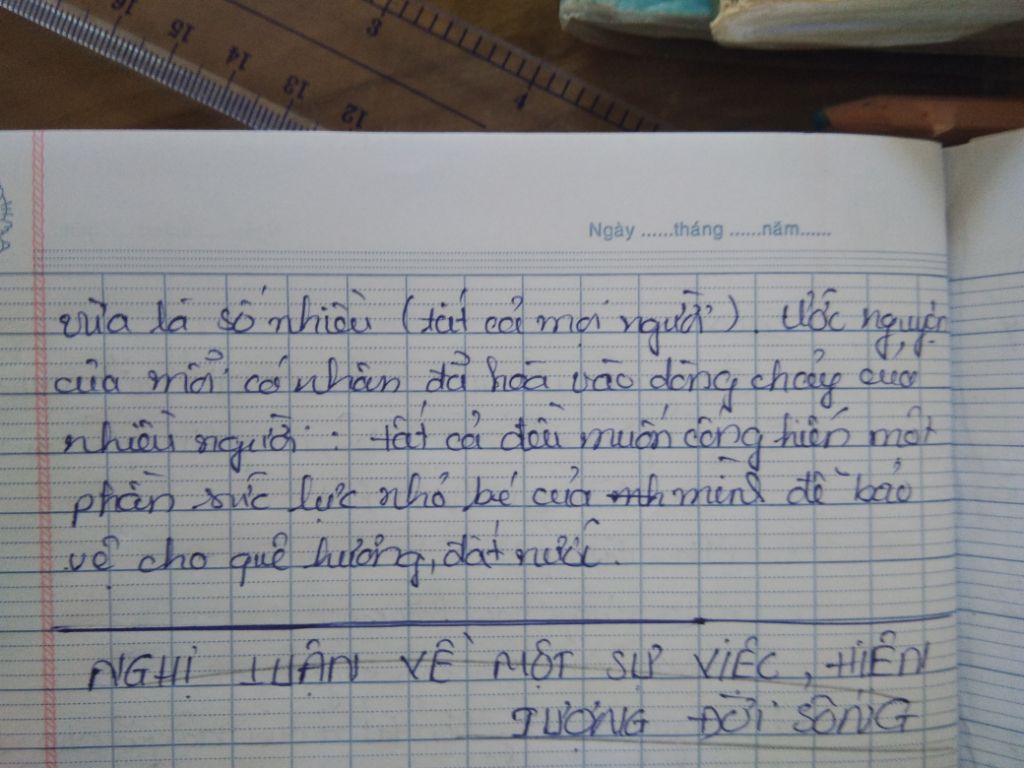 16
15
14
13
12
3
4
Ngày ......tháng ......năm......
vừa là số nhiều (tất cả mọi người). Ước nguyện
của mỗi cá nhân đã hòa vào dòng chảy của
nhiều người : tất cả đều muốn cống hiến một
phần sức lực nhỏ bé của mình để bảo
vệ cho quê hương, đất nước.
NGHỊ LUẬN VỀ MỘT SỰ VIỆC, HIỆN
TƯỢNG ĐỜI SỐNG